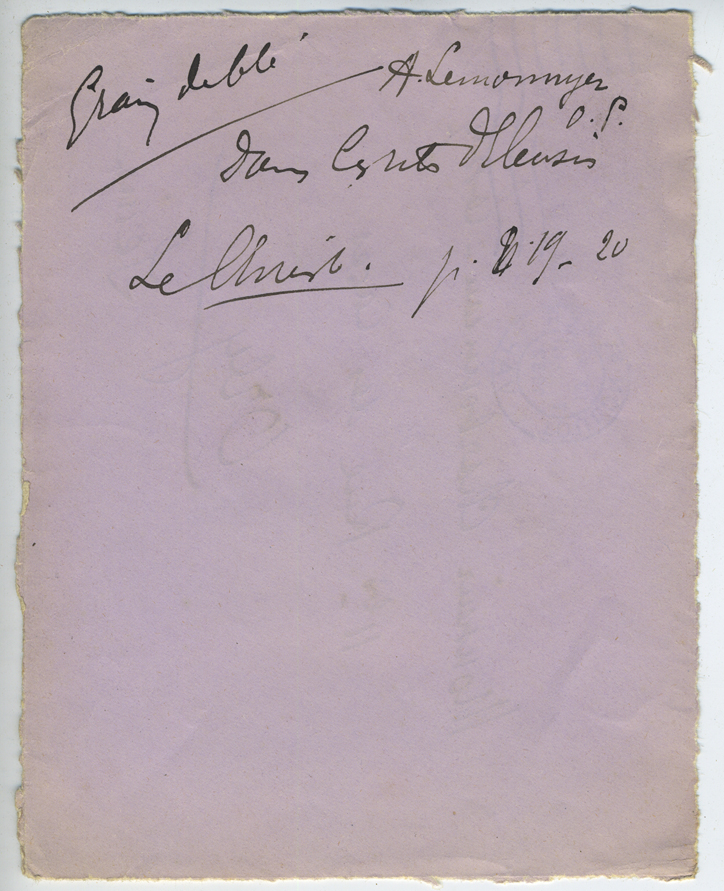 Grain de blé A. Lemonnyer
O. P.
Dans les rites d'Eleusis
Le Christ. p. 19 - 20